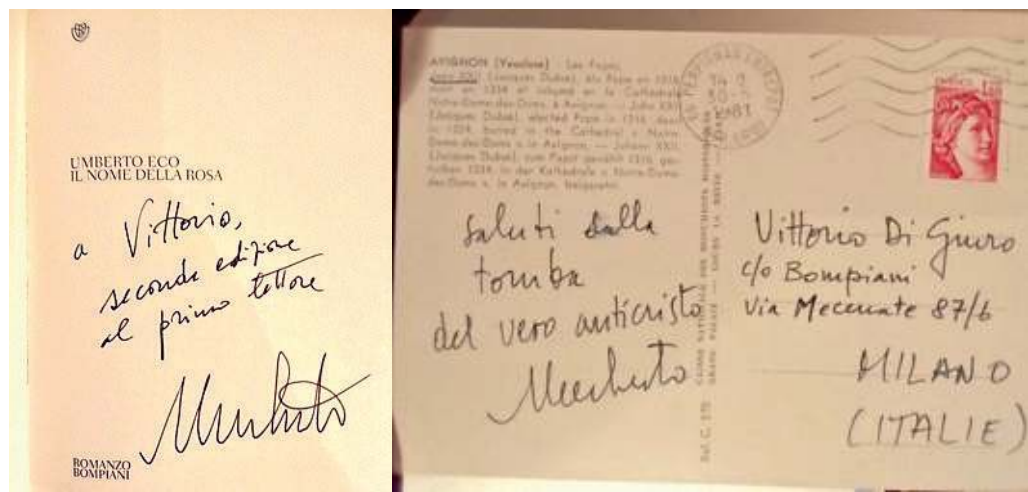 UMBERTO ECO
IL NOME DELLA ROSA
a Vittorio,
seconda edizione
al primo lettore
Umberto
ROMANZO
BOMPIANI
AVIGNON (Vaucluse) - Les Papes.
Jean XXII (Jacques Duèse), élu Pape en 1316,
mort en 1334 et inhumé en la Cathédrale
Notre-Dame-des-Doms, à Avignon. — John XXII
(Jacques Duèse), elected Pope in 1316, dead
in 1334, buried in the Cathedral « Notre-
Dame-des-Doms » in Avignon. — Johann XXII
(Jacques Duèse), zum Papst gewählt 1316, ges-
torben 1334, in der Kathedrale « Notre-Dame-
des-Doms », in Avignon, beigesetzt.
saluti dalla
tomba
del vero anticristo
Umberto
1981
Vittorio Di Giuro
c/o Bompiani
Via Mecenate 87/6
MILANO
(ITALIE)